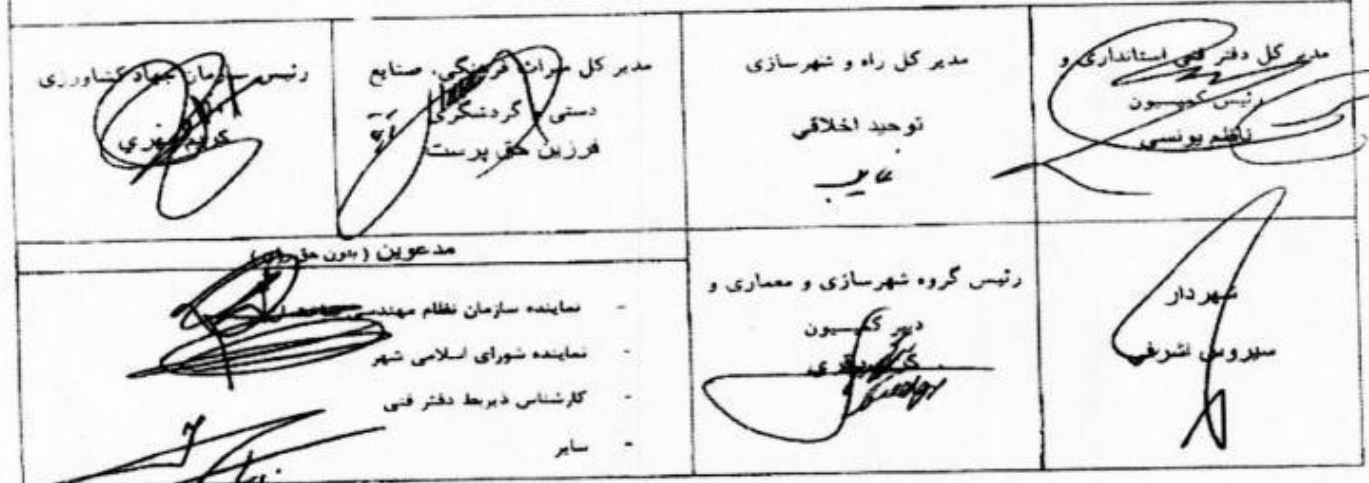 مدیر کل دفتر فنی استانداری و
رئیس کمیسیون
ناظم یونسی
مدیر کل راه و شهرسازی
توحید اخلاقی
غایب
مدیر کل میراث فرهنگی، صنایع
دستی و گردشگری
فرزین حق پرست
رئیس سازمان جهاد کشاورزی
کریم مهری
شهردار
سیروس اشرفی
رئیس گروه شهرسازی و معماری و
دبیر کمیسیون
مدعوین (بدون حق رای)
- نماینده سازمان نظام مهندسی
- نماینده شورای اسلامی شهر
- کارشناس ذیربط دفتر فنی
- سایر